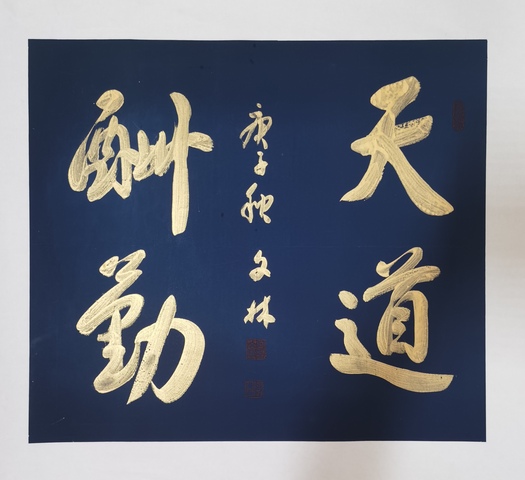 天道
酬勤
庚子秋文林